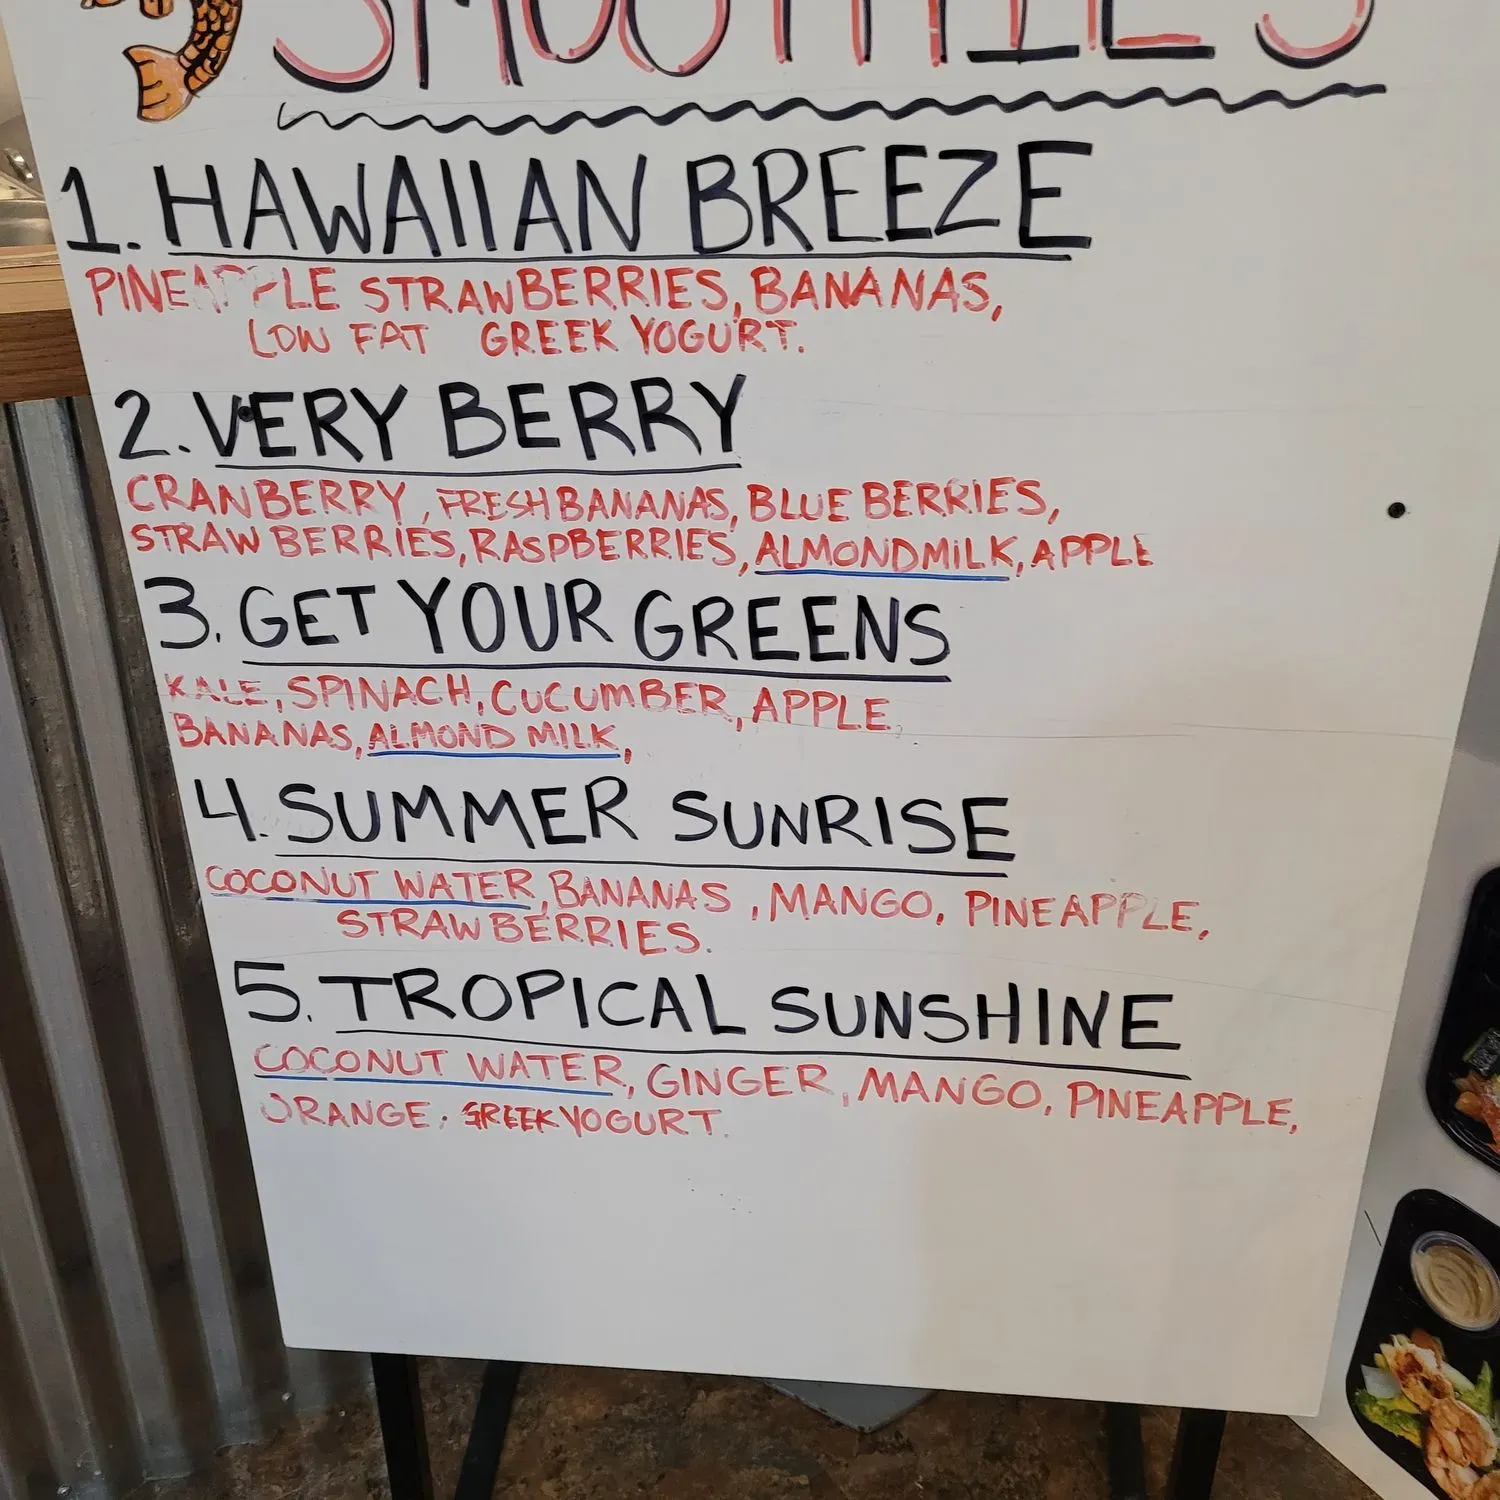 SMOOTHIES
1. HAWAIIAN BREEZE
PINEAPPLE STRAWBERRIES, BANANAS,
LOW FAT GREEK YOGURT.
2. VERY BERRY
CRANBERRY, FRESH BANANAS, BLUEBERRIES,
STRAWBERRIES, RASPBERRIES, ALMONDMILK, APPLE
3. GET YOUR GREENS
KALE, SPINACH, CUCUMBER, APPLE,
BANANAS, ALMOND MILK,
4. SUMMER SUNRISE
COCONUT WATER, BANANAS, MANGO, PINEAPPLE,
STRAWBERRIES.
5. TROPICAL SUNSHINE
COCONUT WATER, GINGER, MANGO, PINEAPPLE,
ORANGE, GREEK YOGURT.